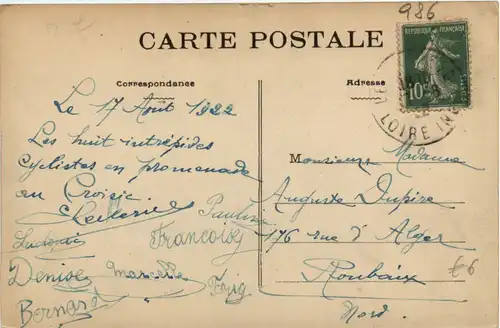 986
CARTE POSTALE
REPUBLIQUE FRANÇAISE
10c
LOIRE INF
Correspondance
Adresse
Le 17 Août 1922
Les huit intrépides
cyclistes en promenade
au Croisic
Pauline
François
Denise Marcelle
Bernard
Monsieur Madame
Auguste Dupire
176 rue d'Alger
Roubaix
Nord.
£6